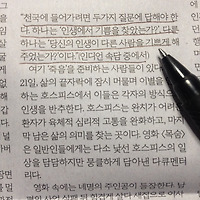 "천국에 들어가려면 두가지 질문에 답해야 한
다. 하나는 '인생에서 기쁨을 찾았는가?', 다른
하나는 '당신의 인생이 다른 사람을 기쁘게 해
주었는가?'이다."(인디언 속담 중에서)
여기 '죽음'을 준비하는 사람들이 있다.
21일, 삶의 끝자락에 잠시 머물며 이별을
하는 호스피스에서 이들은 각자의 방식으
인생을 반추한다. 호스피스는 완치가 어려운
환자가 육체적 심리적 고통을 완화하고, 마지
막 남은 삶의 의미를 찾는 곳이다. 영화 <목숨>
은 일반인들에게는 다소 낯선 호스피스의 일
상을 담담하지만 뭉클하게 담아낸 다큐멘터
리다.
영화 속에는 네명의 주인공이 등장한다. 남